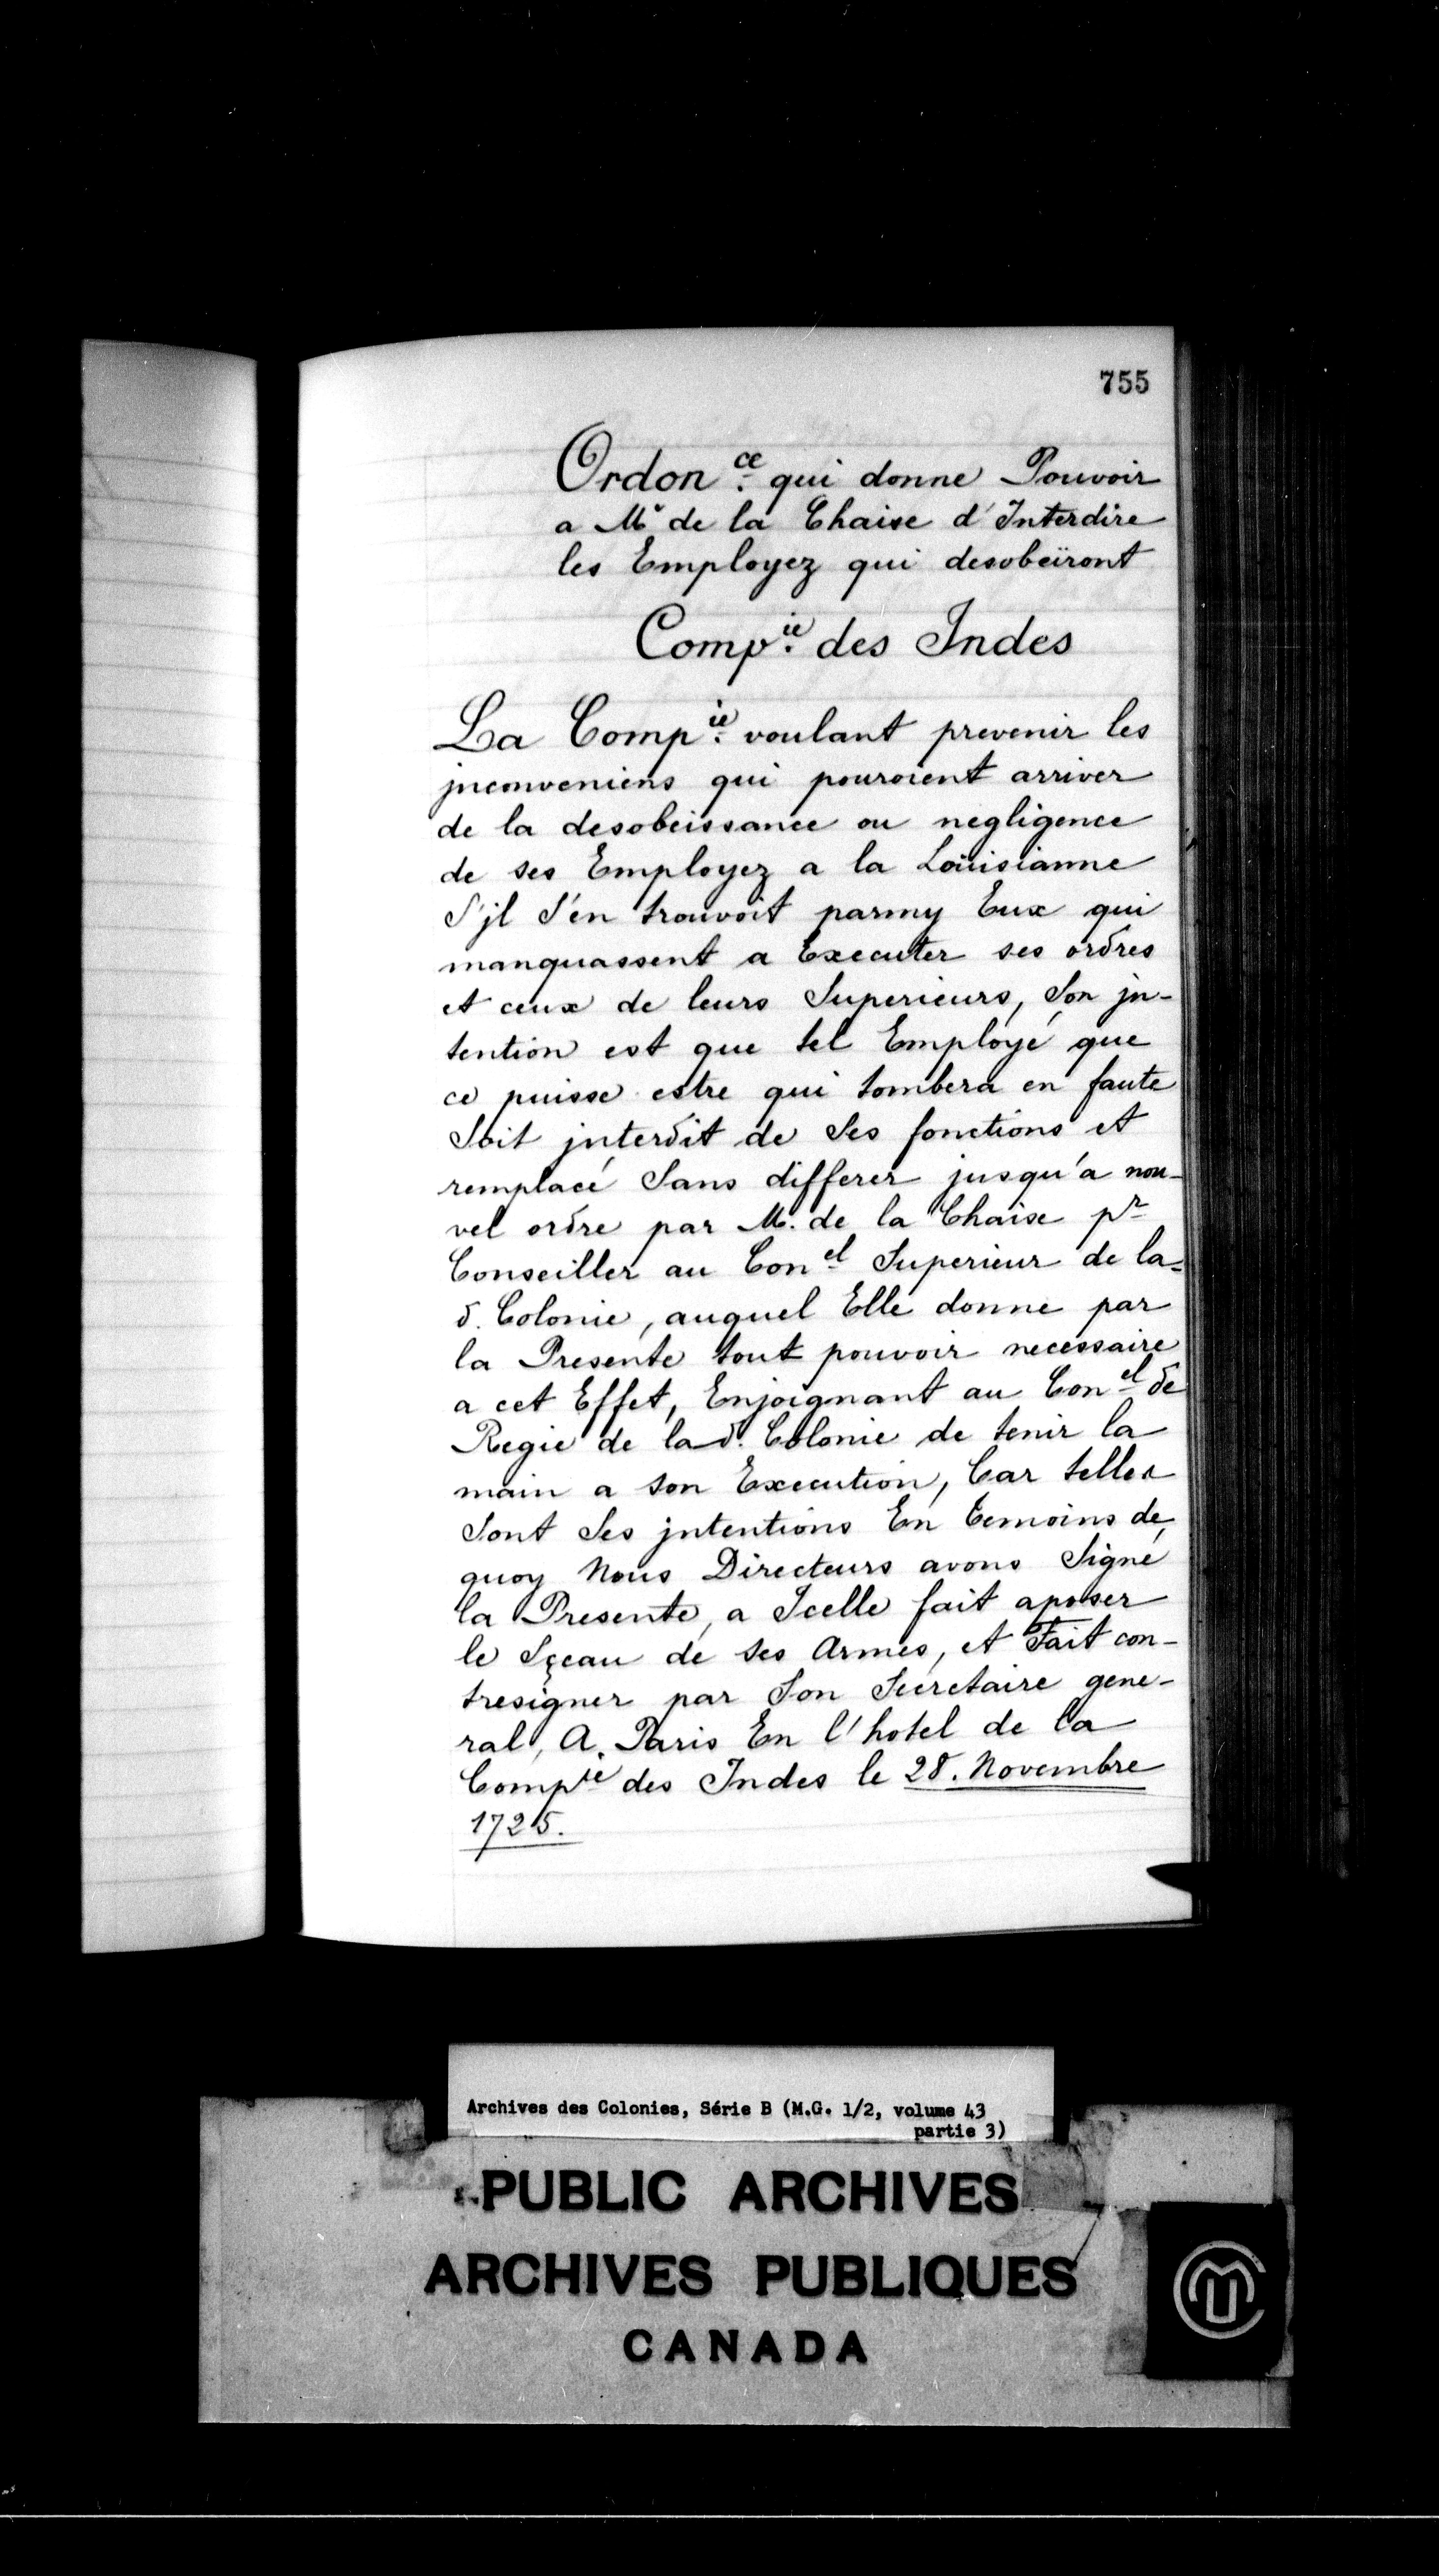 755
Ordon.ce qui donne Pouvoir
a Mr de la Chaise d'Interdire
les Employez qui desobeïront
Comp.ie des Indes
La Comp.ie voulant prevenir les
jnconveniens qui pouroient arriver
de la desobeissance ou negligence
de ses Employez a la Loüisianne
S'jl S'en trouvoit parmy Eux qui
manquassent a Executer ses ordres
et ceux de leurs Superieurs, Son jn-
tention est que tel Employé que
ce puisse estre qui tombera en faute
Soit jnterdit de Ses fonctions et
remplacé Sans differer jusqu'a nou-
vel ordre par M. de la Chaise pr
Conseiller au Conel Superieur de la=
d. Colonie, auquel Elle donne par
la Presente tout pouvoir necessaire
a cet Effet, Enjoignant au Conel de
Regie de la d. Colonie de tenir la
main a son Execution, Car telles
Sont Ses jntentions En temoins de
quoy Nous Directeurs avons Signé
la Presente, a Jcelle fait aposer
le Sçeau de ses Armes, et Fait con-
tresigner par Son Secretaire gene-
ral, A. Paris En l'hotel de la
Compie des Indes le 28. Novembre
1725.
Archives des Colonies, Série B (M.G. 1/2, volume 43
partie 3)
PUBLIC ARCHIVES
ARCHIVES PUBLIQUES
CANADA